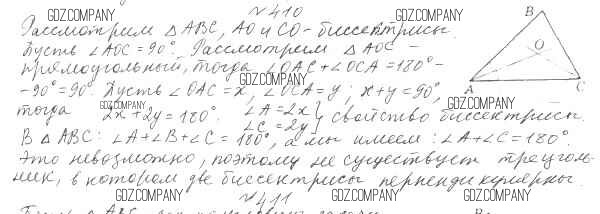 №410
GDZ.COMPANY GDZ.COMPANY
Рассмотрим △ABC, AO и CO - биссектрисы.
Пусть ∠AOC = 90°. Рассмотрим △AOC -
прямоугольный, тогда ∠OAC + ∠OCA = 180° -
GDZ.COMPANY
- 90° = 90°. Пусть ∠OAC = x, ∠OCA = y; x + y = 90°,
GDZ.COMPANY GDZ.COMPANY
тогда 2x + 2y = 180°. ∠A = 2x ∠C = 2y } свойство биссектрисы.
В △ABC: ∠A + ∠B + ∠C = 180°, а мы имеем: ∠A + ∠C = 180°.
Это невозможно, поэтому не существует треуголь-
ник, в котором две биссектрисы перпендикулярны.
GDZ.COMPANY GDZ.COMPANY GDZ.COMPANY
№411
B
O
A
C